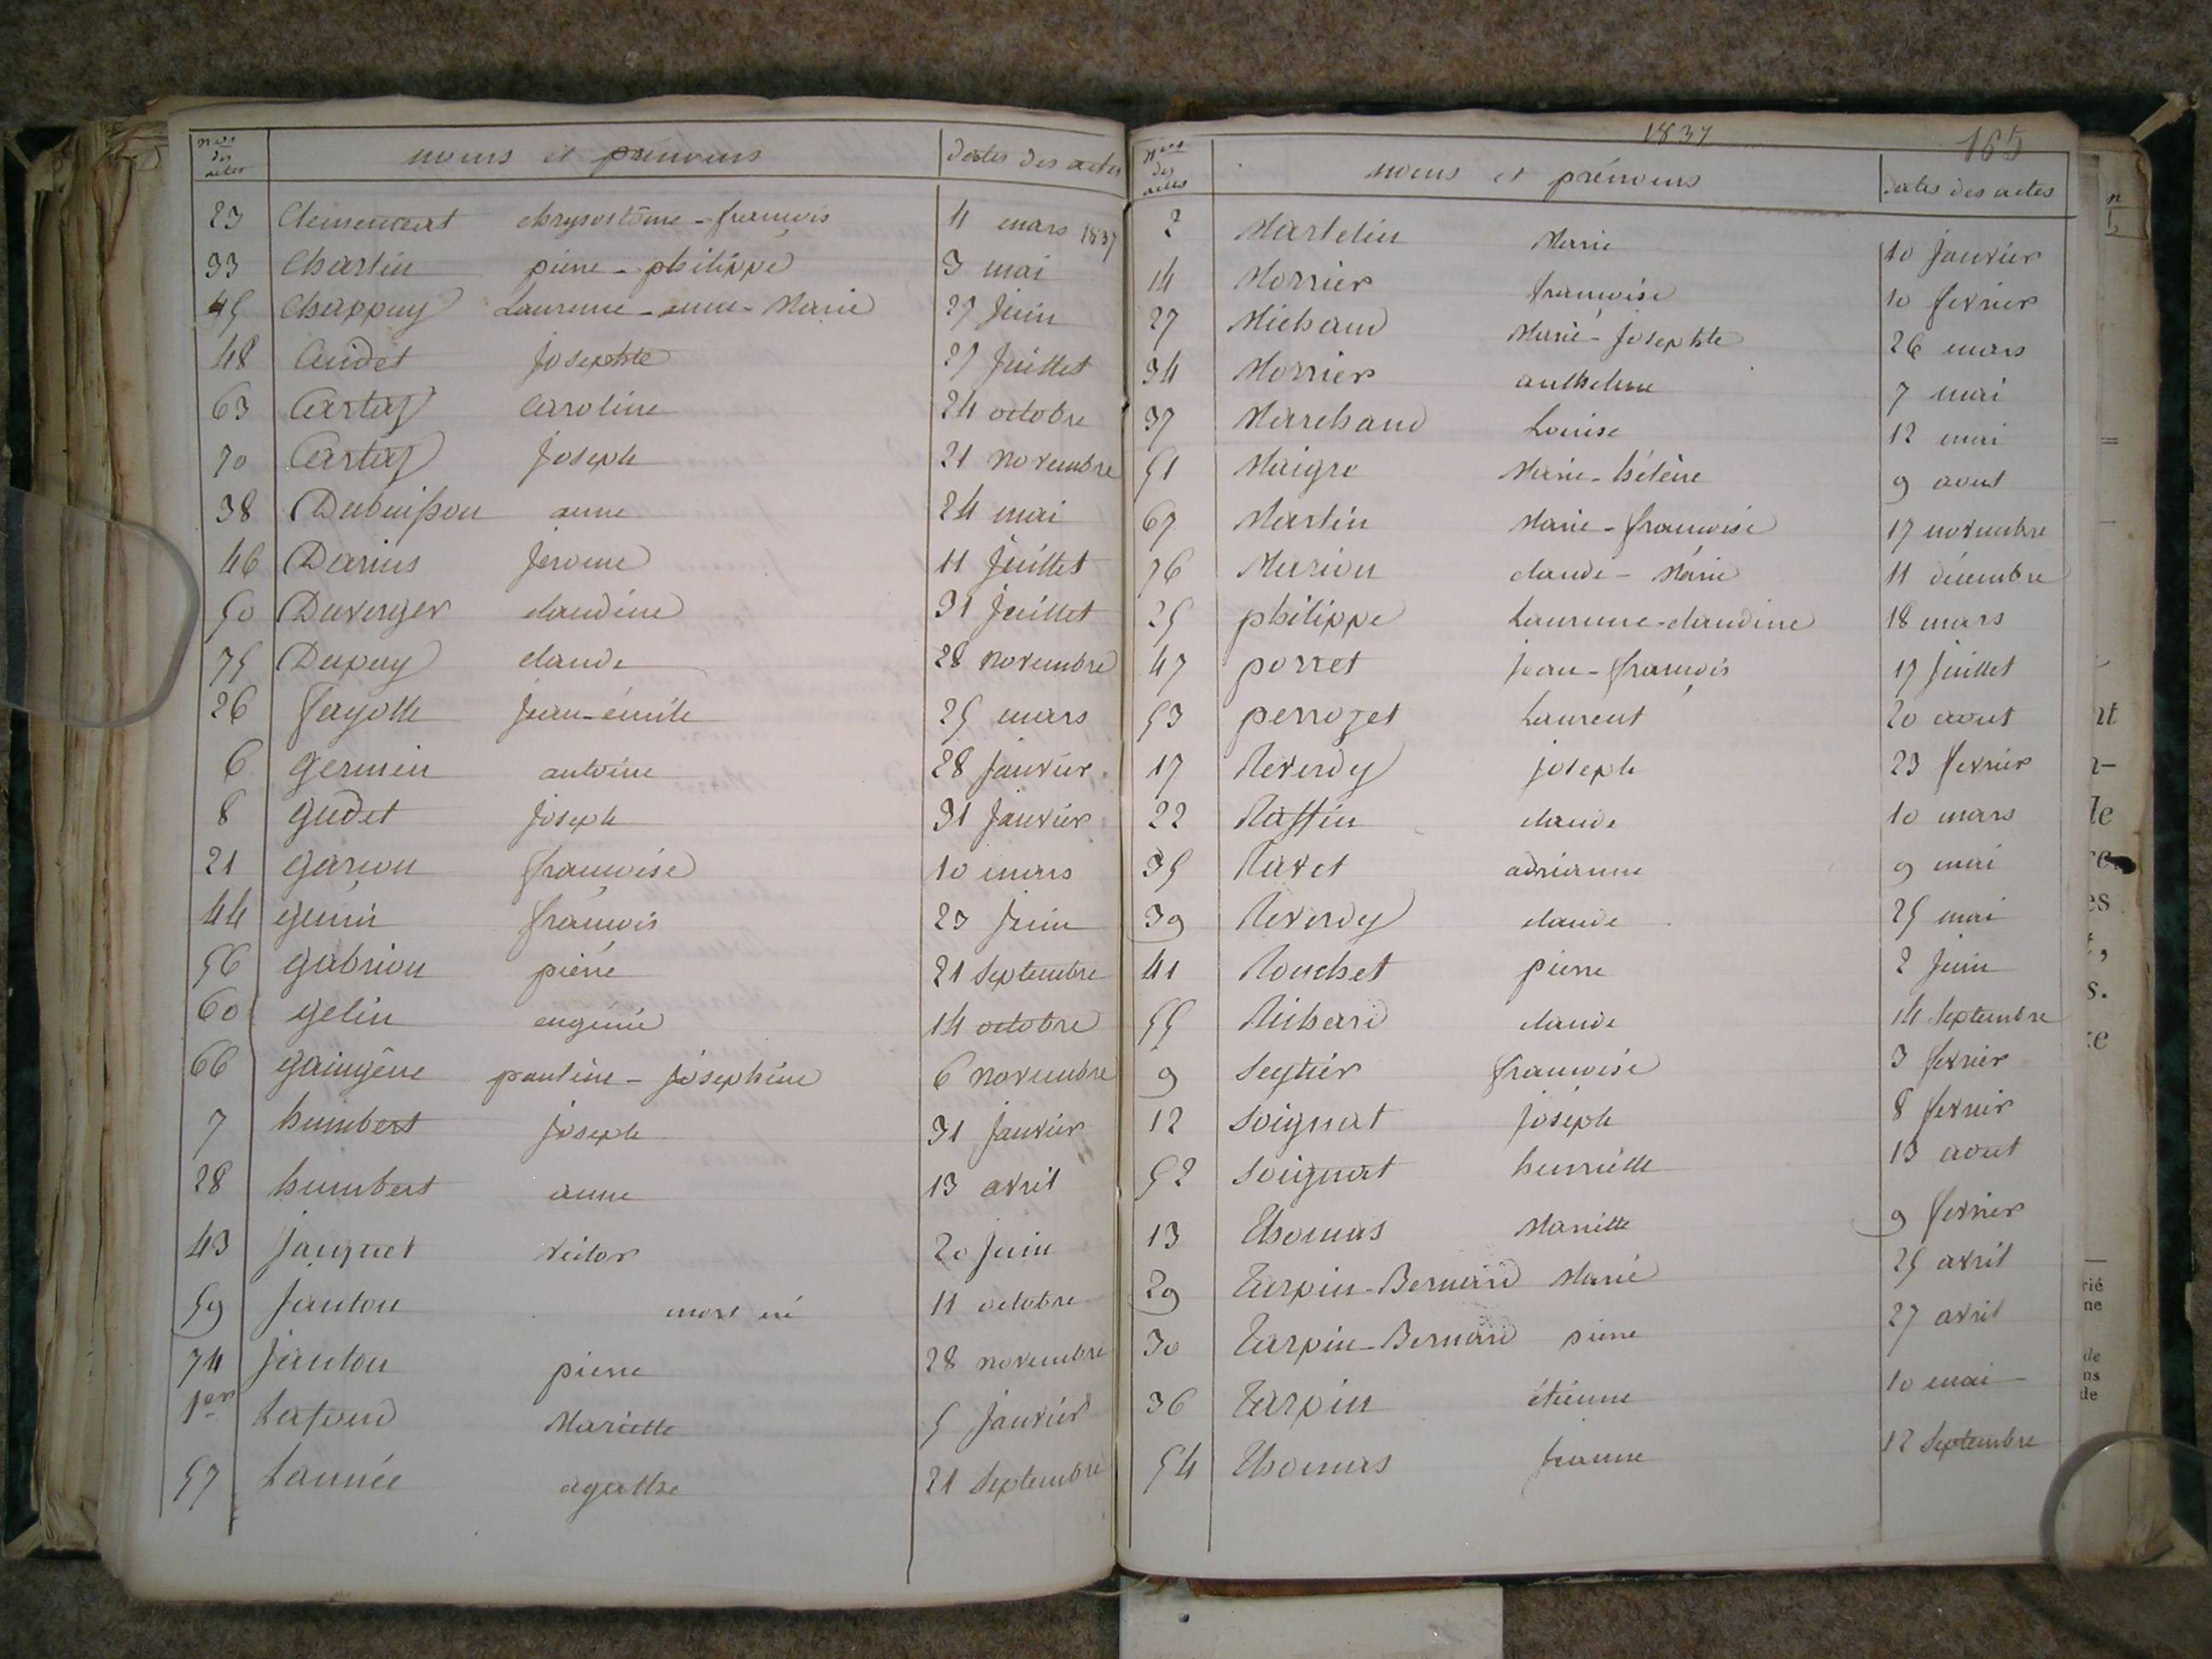 nos des actes noms et prénoms dates des actes
23 Clemencent chrysostôme-françois 4 mars 1837
33 Chartin pierre-philippe 3 mai
45 Chappuy Laurence-anne-Marie 27 Juin
48 Cudet Josephte 27 Juillet
63 Cartaz Caroline 24 octobre
70 Cartaz Joseph 21 novembre
38 Dubuisson anne 24 mai
46 Darius Jérome 11 Juillet
50 Duverger claudine 31 Juillet
75 Dupuy claude 28 novembre
26 fayolle Jean-émile 25 mars
6 germain antoine 28 Janvier
8 gudet Joseph 31 Janvier
21 garçon françoise 10 mars
44 genin françois 23 Juin
56 gabrion pierre 21 Septembre
60 gelin eugénie 14 octobre
66 gaingêne pauline-Joséphine 6 novembre
7 humbert Joseph 31 Janvier
28 humbert anne 13 avril
43 Janquet victor 20 Juin
59 Janton mort né 11 octobre
74 Janton pierre 28 novembre
1er Lafond Mariette 5 Janvier
57 Lannée agathe 21 Septembre
1837 165
nos des actes noms et prénoms dates des actes
2 Martelin Marie 10 Janvier
14 Morrier françoise 10 fevrier
27 Michaud Marie-Josephte 26 mars
34 Morrier anthelme 7 mai
37 Marchand Louise 12 mai
51 Maigre Marie-hélène 9 aout
67 Martin Marie-françoise 17 novembre
76 Marion claude-Marie 11 décembre
25 philippe Laurence-claudine 18 mars
47 porret Jean-françois 17 Juillet
53 perrozet Laurent 20 aout
17 Reverdy joseph 23 fevrier
22 Raffin claude 10 mars
35 Ravet adrianne 9 mai
39 Reverdy claude 25 mai
41 Rouchet pierre 2 Juin
55 Richard claude 14 Septembre
9 Seytier françoise 3 fevrier
12 Soignat Joseph 8 fevrier
52 Soignat henriette 13 aout
13 Thomas Mariette 9 fevrier
29 Turpin-Bernard Marie 25 avril
30 Turpin-Bernard pierre 27 avril
36 Turpin étienne 10 mai
54 Thomas Jeanne 12 Septembre